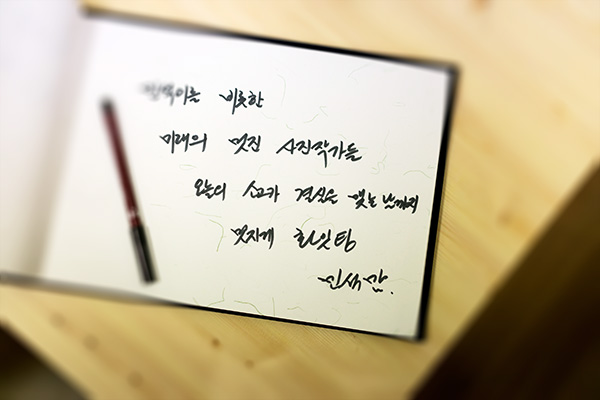 비롯한
미래의 멋진 사진작가들
오늘의 수고가 결실을 맺는 날까지
멋지게 화잇팅
인석 맘.